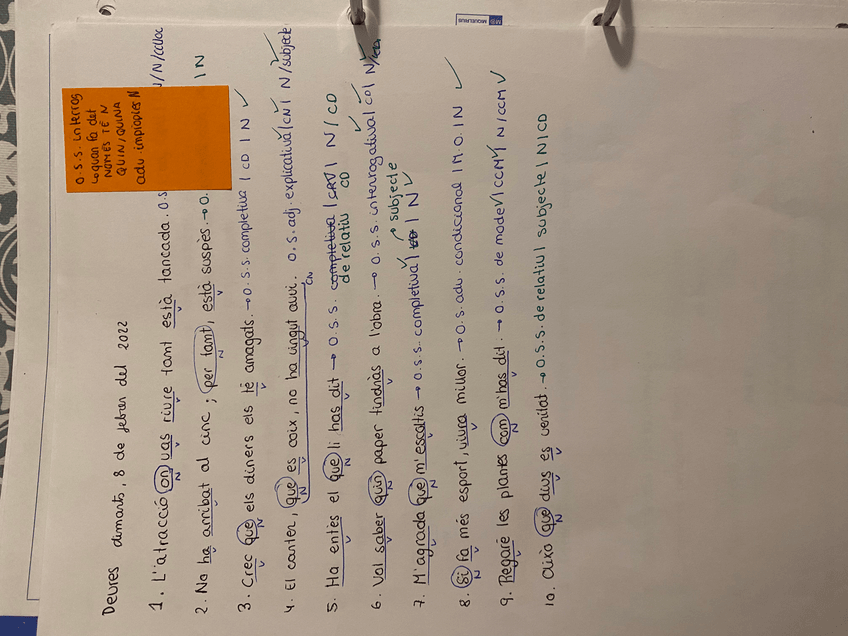 MIQUELRIUS
O.S.S. interrog
quan fa det
NOMÉS TÉ N
QUIN/QUINA
adv. impropies N
Deures dimarts, 8 de febrer del 2022
1. L'atracció on vas riure tant està tancada. O.S /N/CClloc
N
2. No ha arribat al cinc ; per tant, està suspès. → O. I N
N
3. Crec que els diners els té amagats. → O.S.S. completiva | CD | N ✓
V N V
4. El canter, que es coix, no ha vingut avui. O.S. adj. explicativa | CN | N /subjecte
N V V CN
5. Ha entès el que li has dit → O.S.S. completiva | CRV | N / CD
V N V de relatiu CD
6. Vol saber quin paper tindràs a l'obra. → O.S.S. interrogativa | CD | N/
V N V
7. M'agrada que m'escoltis → O.S.S. completiva | CD | N ✓
V N V → subjecte
8. Si fa més esport, viura millor. → O.S. adv. condicional | M.O. | N ✓
N V V
9. Regaré les plantes com m'has dit. → O.S.S. de mode | CCM | N/CCM ✓
V N V
10. Això que dius es veritat. → O.S.S. de relatiu | subjecte | N | CD
N V V